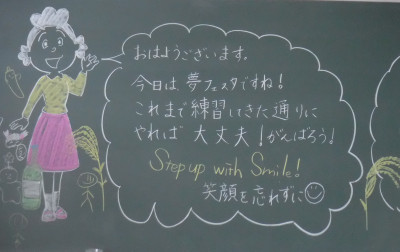 おはようございます。
今日は夢フェスタですね!
これまで練習してきた通りに
やれば大丈夫!がんばろう!
Step up with Smile!
笑顔を忘れずに